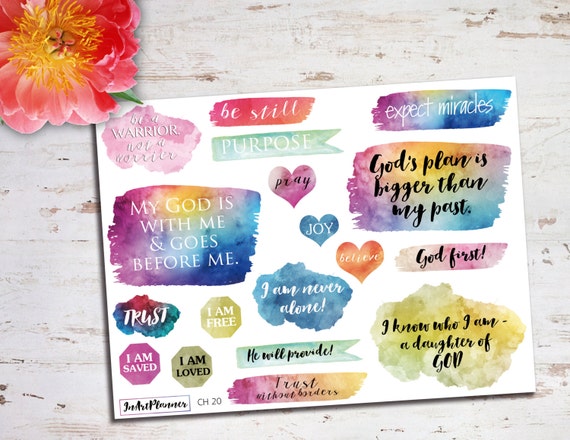 be a
WARRIOR,
not a
worrier
be still
PURPOSE
expect miracles
pray
God's plan is
bigger than
my past.
MY GOD IS
WITH ME
& GOES
BEFORE ME.
JOY
believe
God first!
I am never
alone!
TRUST
I AM
FREE
I know who I am -
a daughter of
GOD
I AM
SAVED
I AM
LOVED
He will provide!
Trust
without borders
InArtPlanner
CH 20